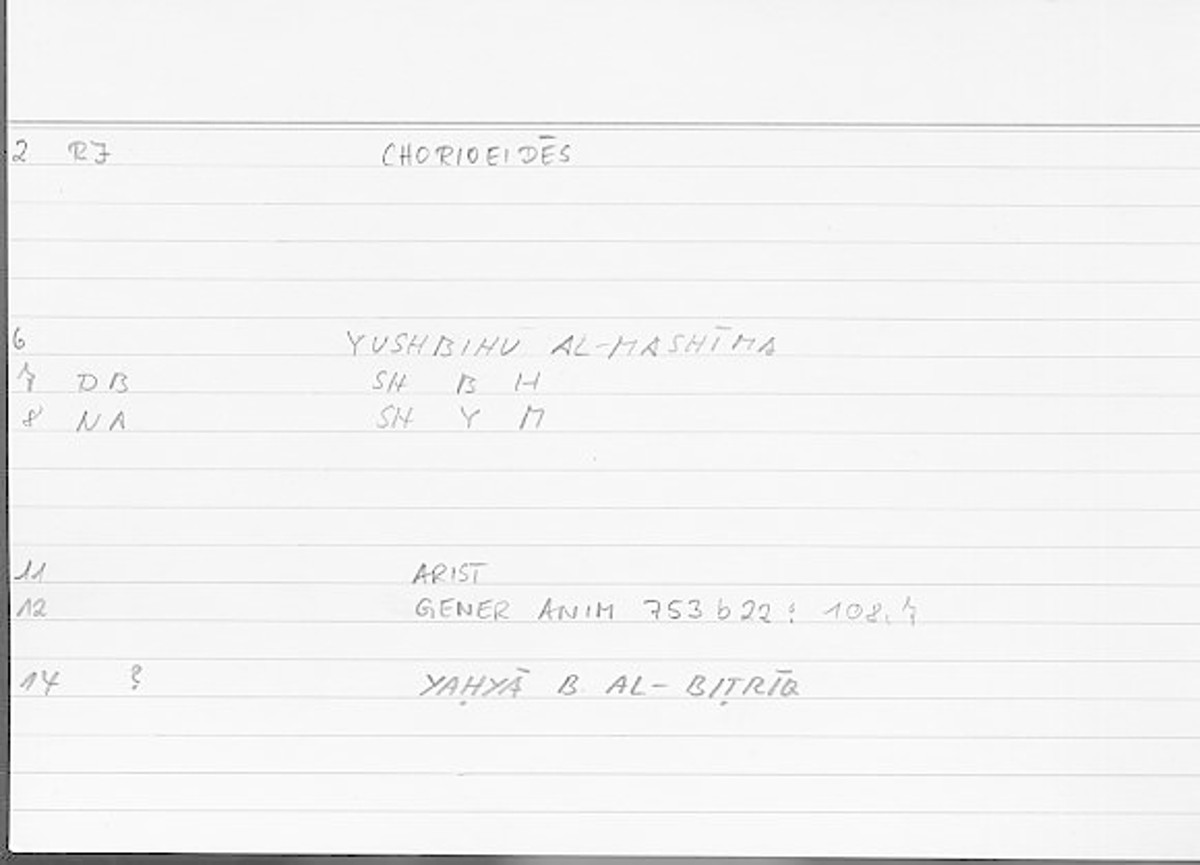 2 RJ CHORIOEIDĒS
6 YUSHBIHU AL-MASHĪMA
7 DB SH B H
8 NA SH Y M
11 ARIST
12 GENER ANIM 753 b 22 : 108.7
14 ? YAḤYĀ B. AL-BIṬRĪQ